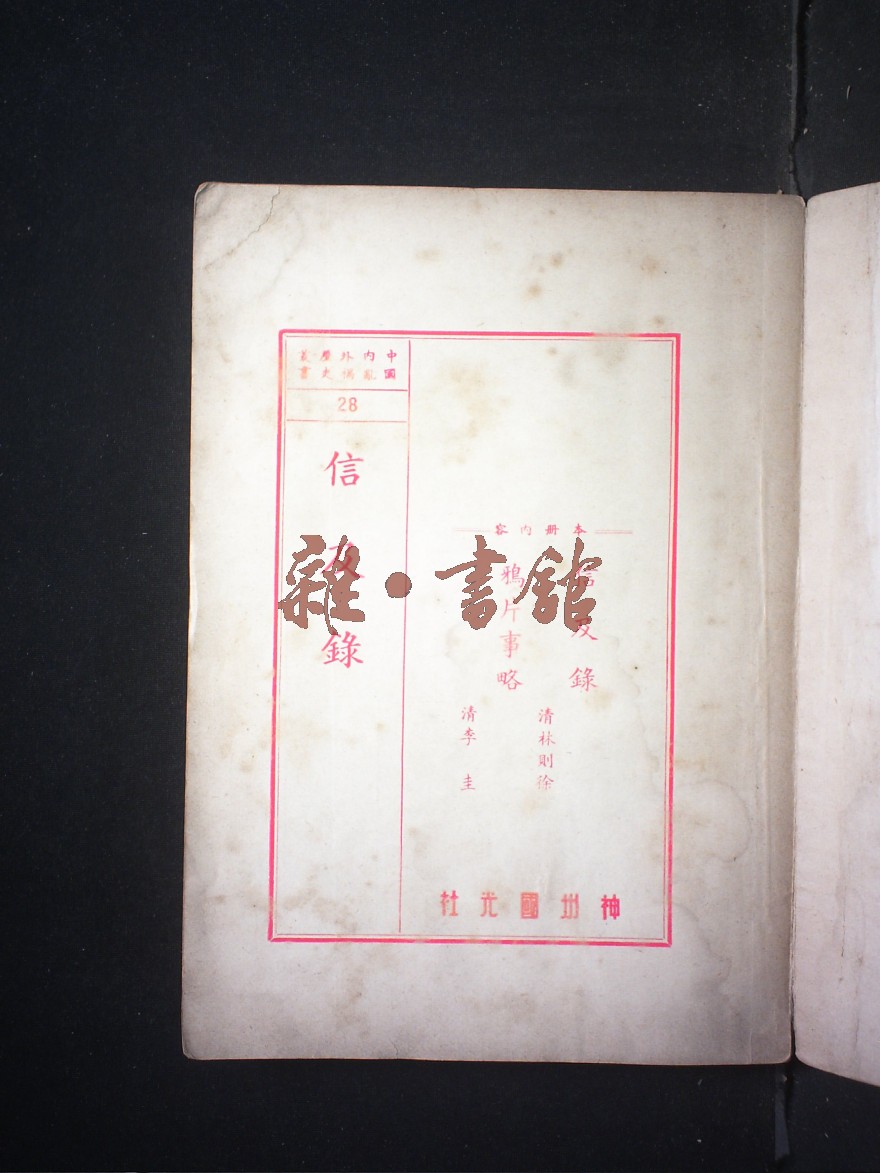 中國內亂外禍歷史叢書
28
信及錄
本册內容
信及錄
清林則徐
鴉片事略
清李圭
神州國光社
雜·書館